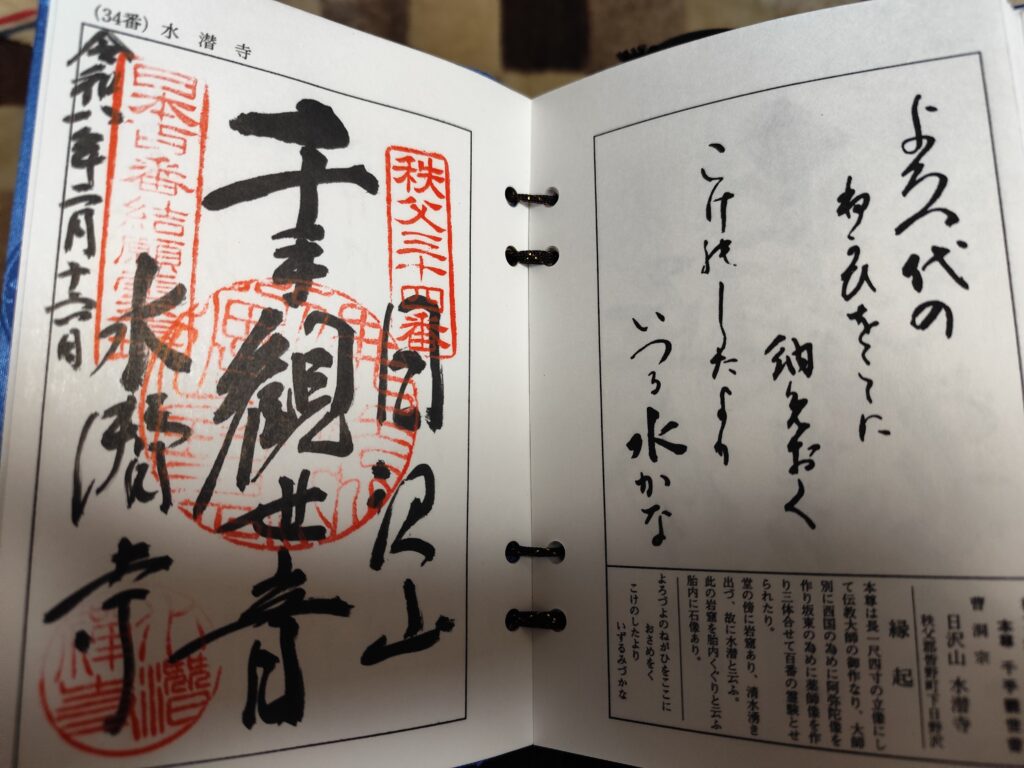 (34番) 水潜寺
秩父三十四番
日沢山
千手観世音
水潜寺
日本百番結願
令和八年二月十六日
よろつ代の
ねかひをここに
納めおく
こけの したより
いつる水かな
本尊 千手観世音
曹洞宗
日沢山 水潜寺
秩父郡皆野町下日野沢
縁起
本尊は長一尺四寸の立像にし
て伝教大師の御作なり、大師
別に西国の為めに阿弥陀像を
作り坂東の為めに薬師像を作
り三体合せて百番の霊験とせ
られたり。
堂の傍に岩窟あり、清水湧き
出づ、故に水潜と云ふ。
此の岩窟を胎内くぐりと云ふ
胎内に石像あり。
よろづよのねがひをここに
おさめをく
こけのしたより
いずるみづかな